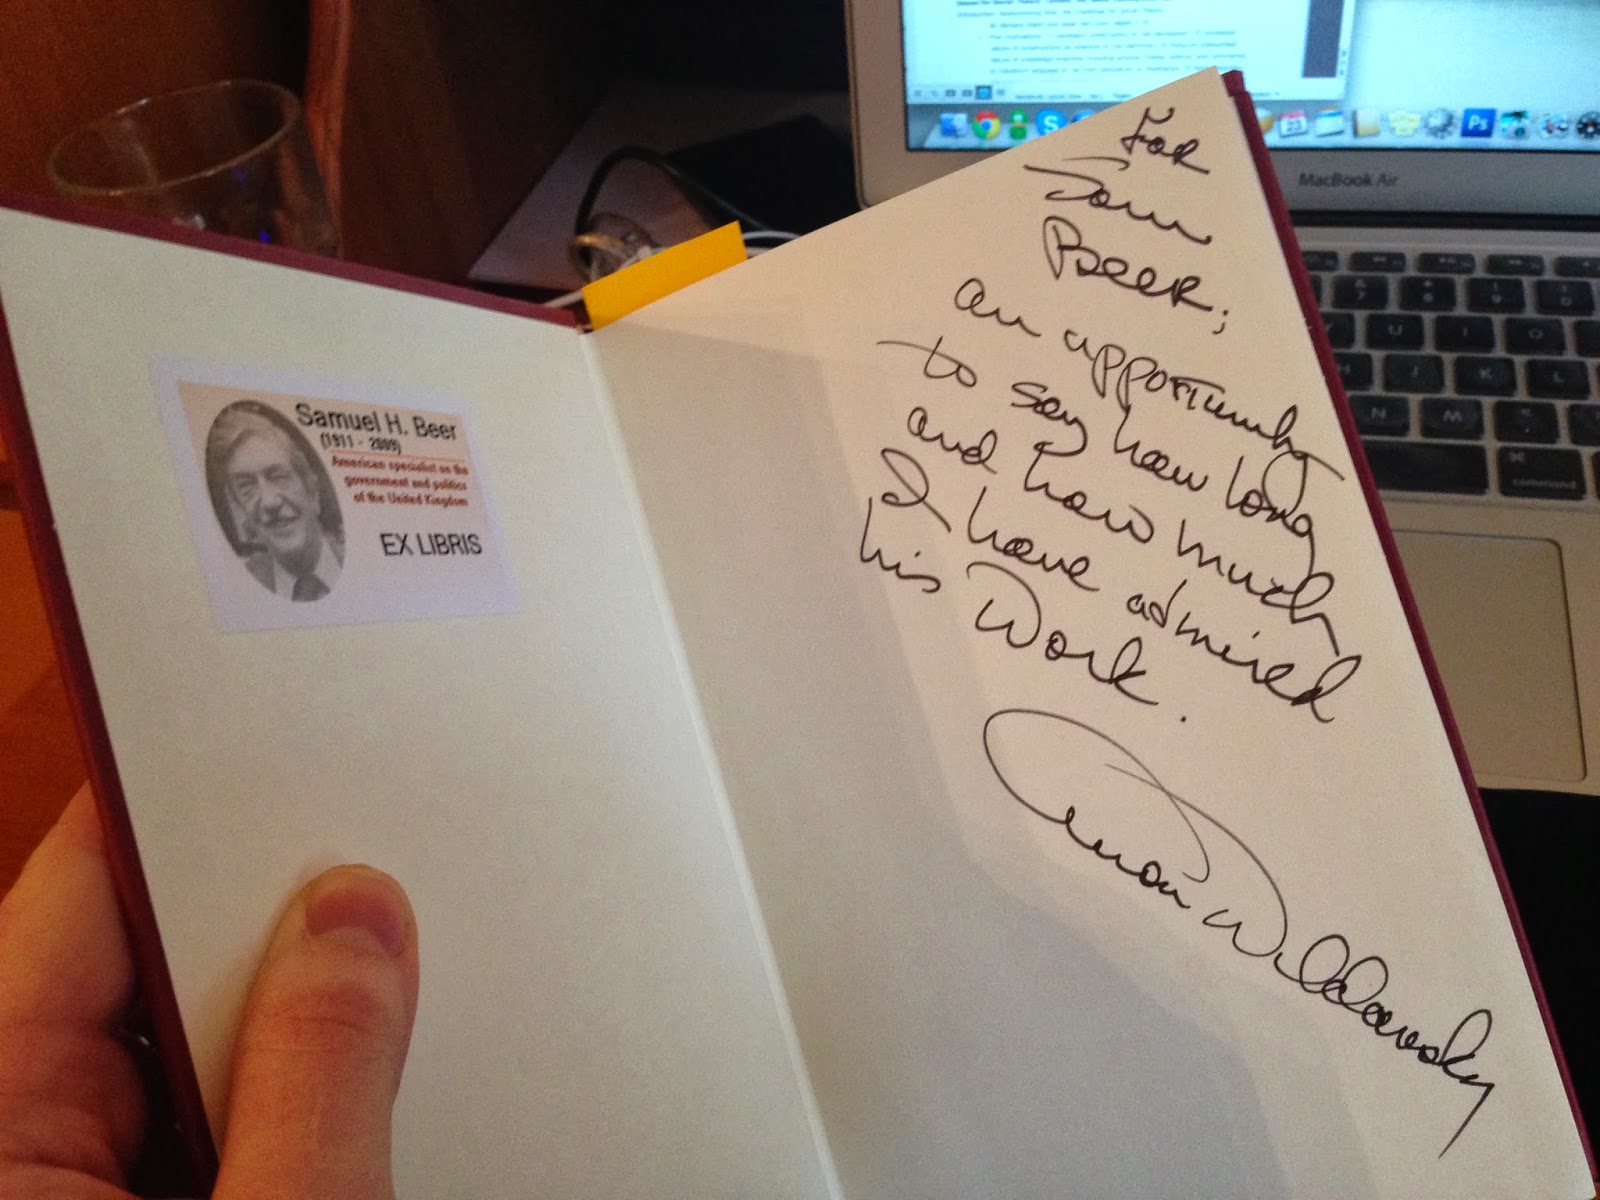 Samuel H. Beer
(1911 - 2009)
American specialist on the
government and politics
of the United Kingdom
EX LIBRIS
For
Sam
Beer;
an opportunity
to say how long
and how much
I have admired
his Work.
Aaron Wildavsky
MacBook Air
23
Ps
command